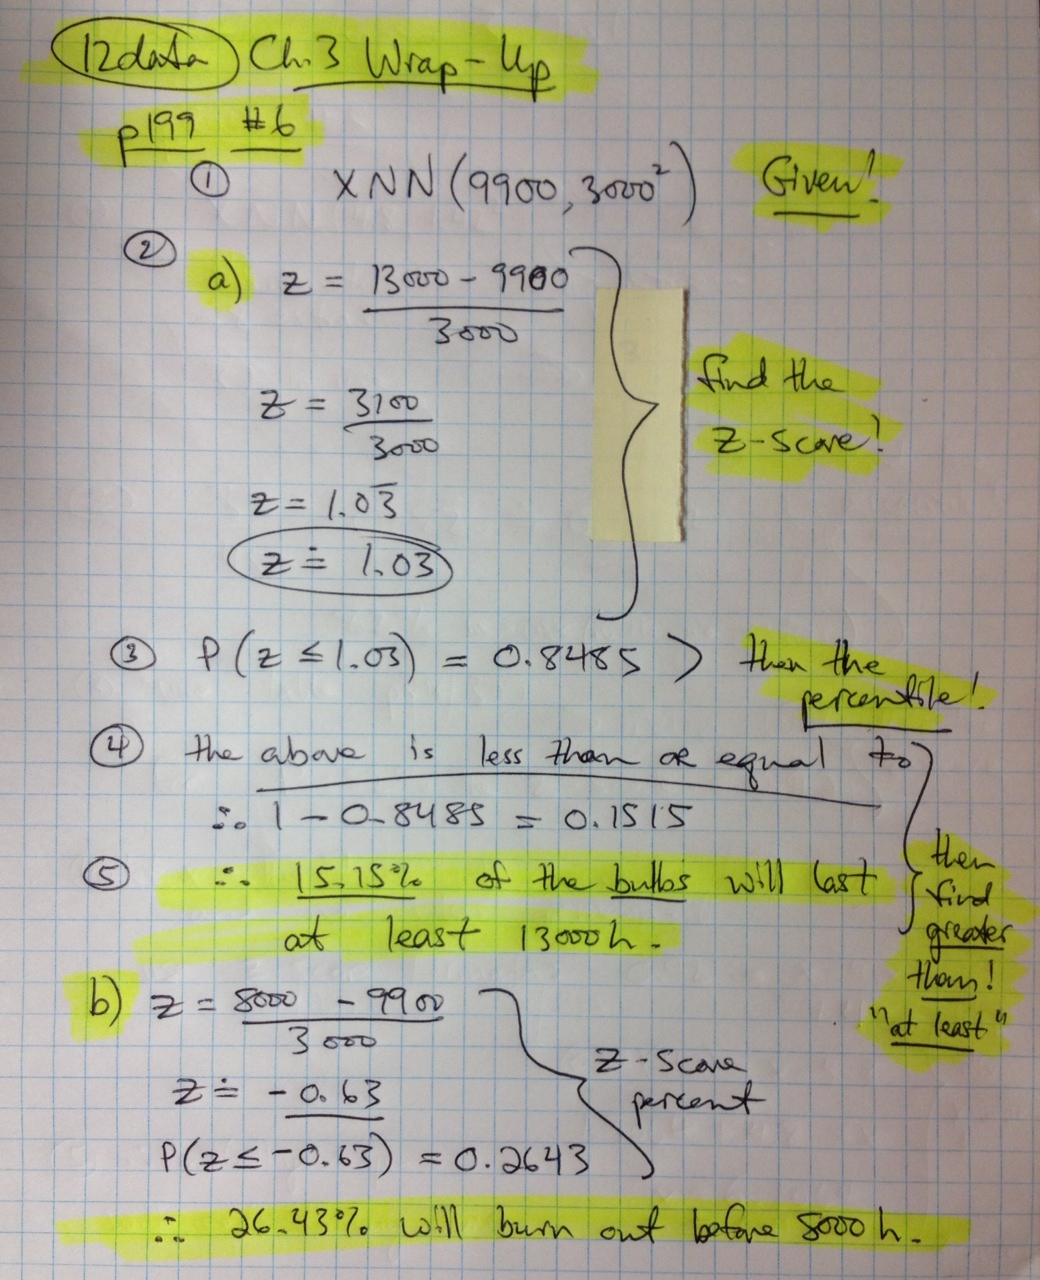 12data Ch.3 Wrap-Up
p199 #6
① X~N(9900, 3000²) Given!
②
a) z = 13000 - 9900
3000
z = 3100
3000
find the
z-score!
z = 1.03̅
z ≐ 1.03
③ P(z ≤ 1.03) = 0.8485 > then the
percentile!
④ the above is less than or equal to
∴ 1 - 0.8485 = 0.1515
⑤ ∴ 15.15% of the bulbs will last
at least 13000h.
then
find
greater
than!
"at least"
b) z = 8000 - 9900
3000
z ≐ -0.63
P(z ≤ -0.63) = 0.2643
z-score
percent
∴ 26.43% will burn out before 8000h.